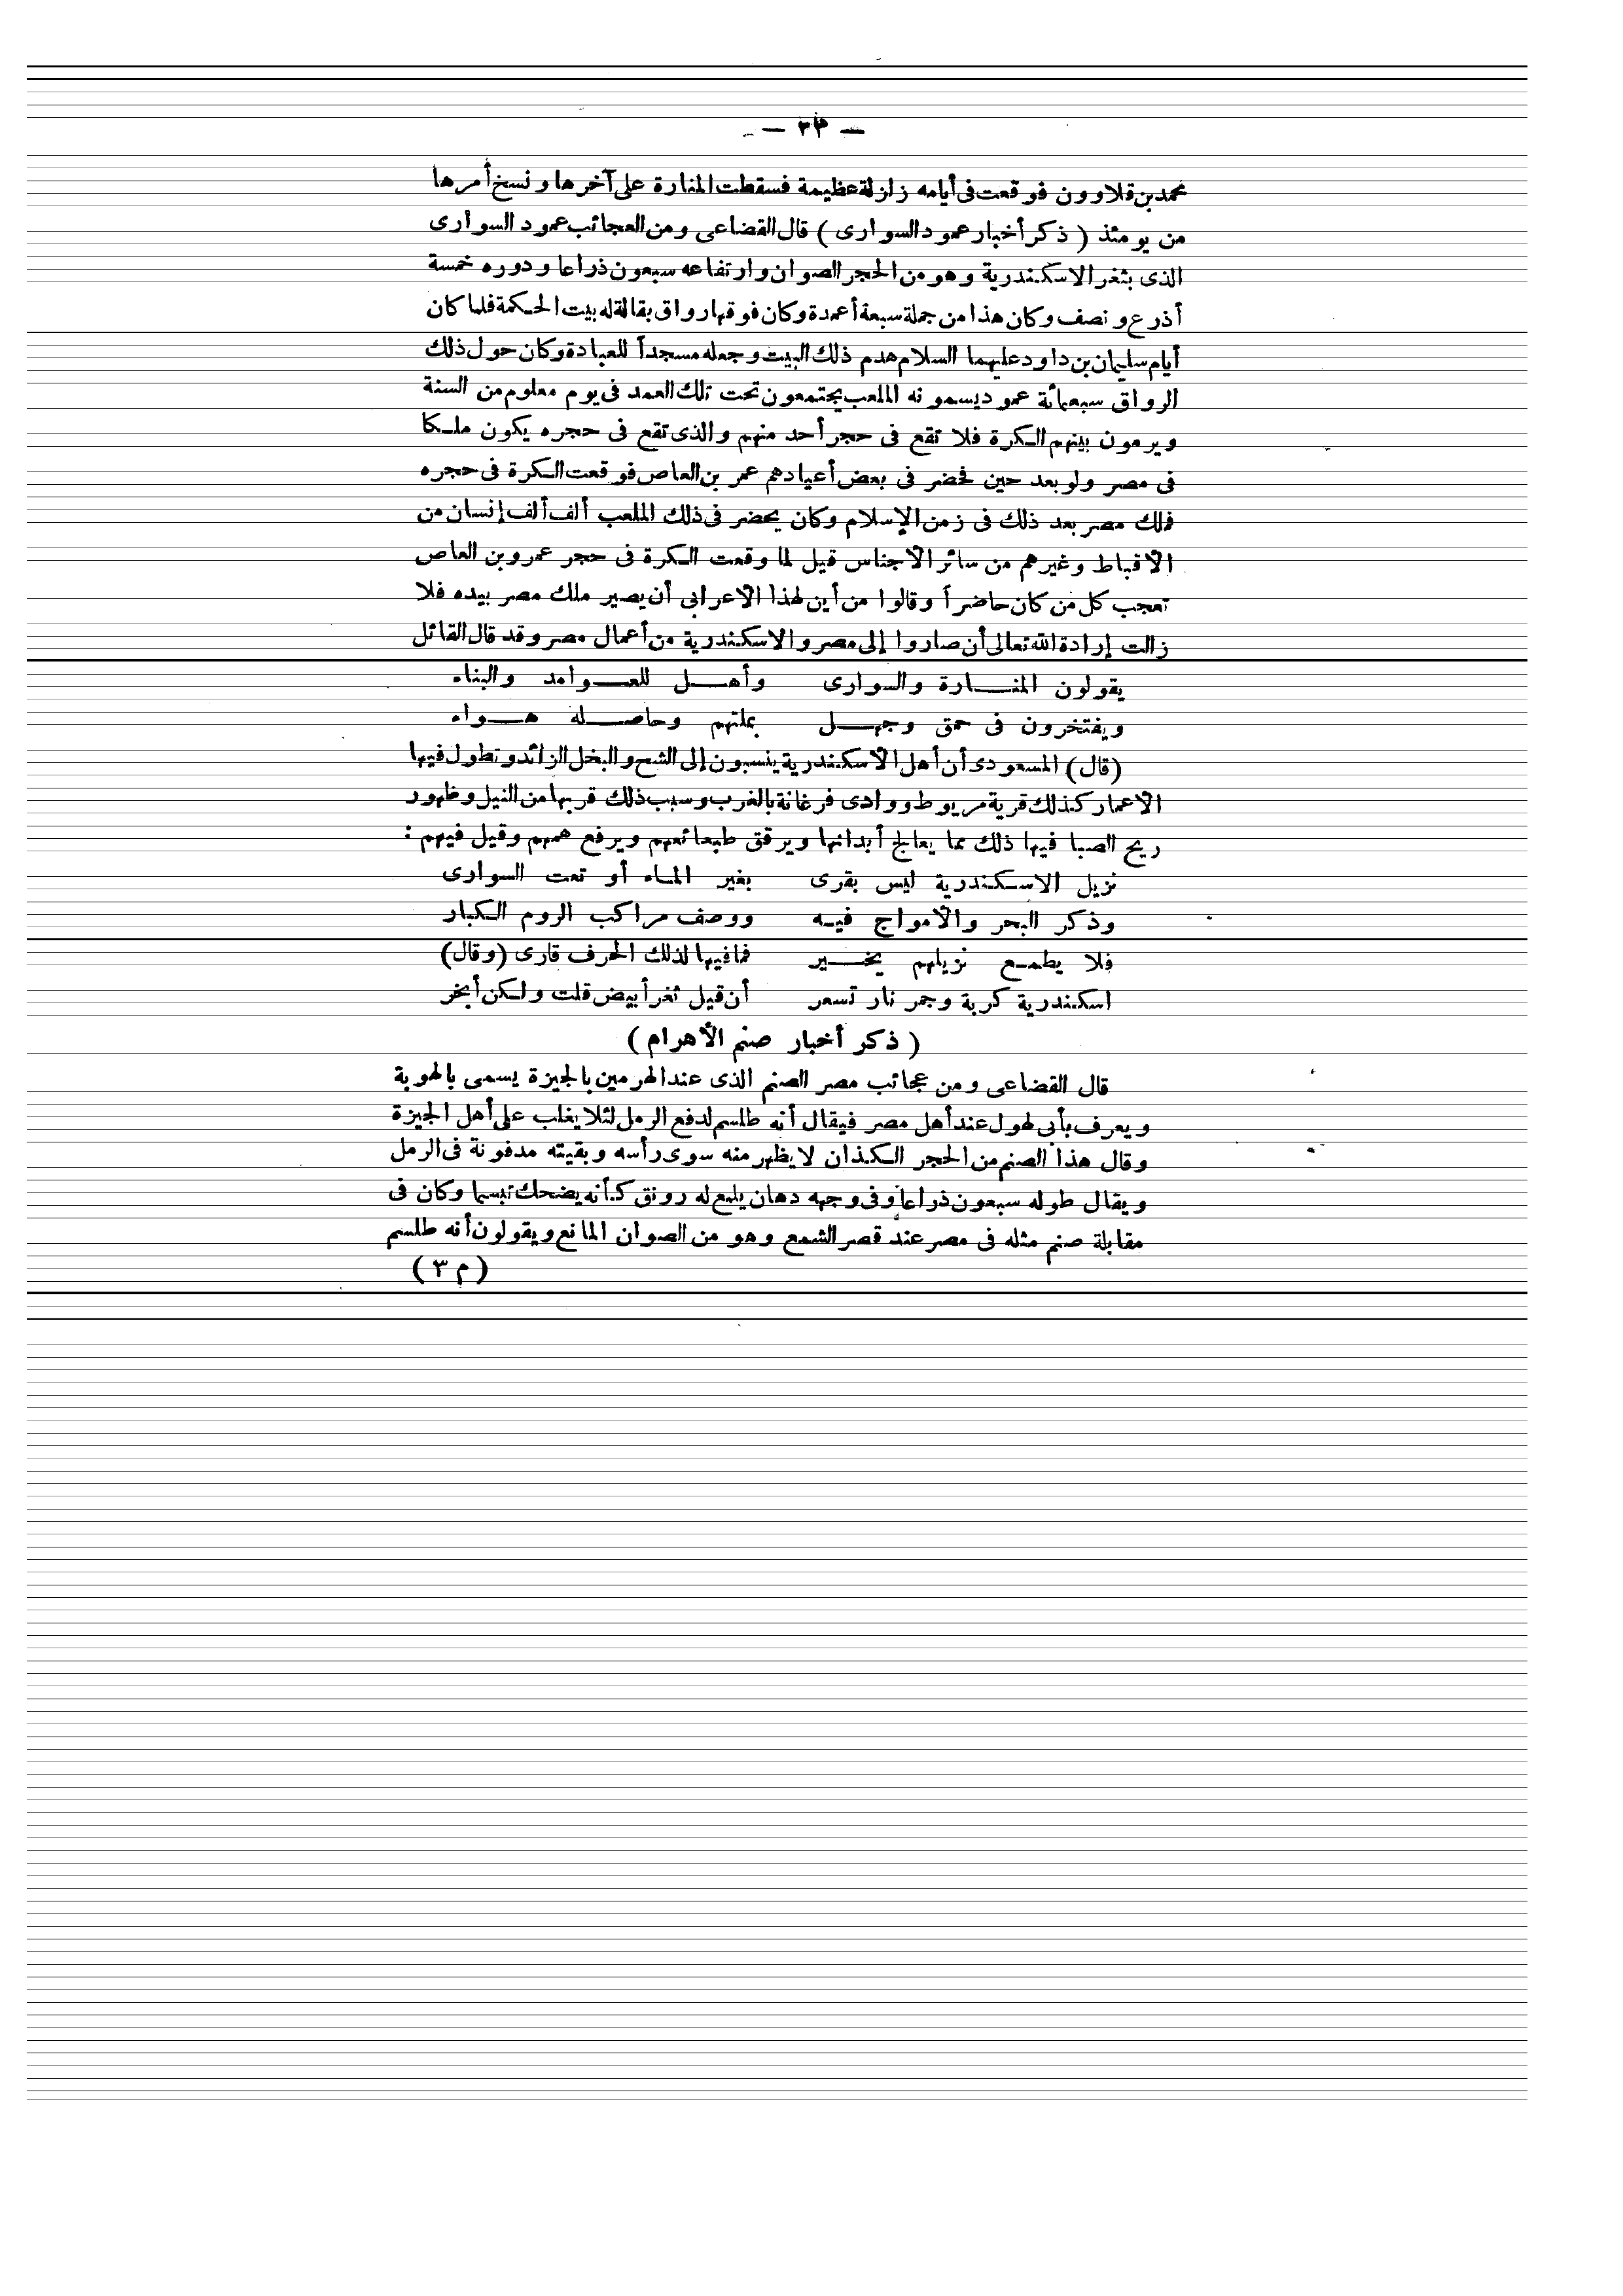 — ٣٣ —
محمد بن قلاوون فوقعت فى أيامه زلزلة عظيمة فسقطت المنارة على آخرها ونسخ أمرها
من يومئذ ( ذكر أخبار عمود السوارى ) قال القضاعى ومن العجائب عمود السوارى
الذى بثغر الاسكندرية وهو من الحجر الصوان وارتفاعه سبعون ذراعا ودوره خمسة
أذرع ونصف وكان هذا من جملة سبعة أعمدة وكان فوقها رواق بقالة له بيت الحكمة فلما كان
أيام سليمان بن داود عليهما السلام هدم ذلك البيت وجعله مسجداً للعبادة وكان حول ذلك
الرواق سبعمائة عمود يسمونه الملعب يجتمعون تحت تلك العمد فى يوم معلوم من السنة
ويرمون بينهم الكرة فلا تقع فى حجر أحد منهم والذى تقع فى حجره يكون ملكا
فى مصر ولو بعد حين فحضر فى بعض أعيادهم عمر بن العاص فوقعت الكرة فى حجره
فملك مصر بعد ذلك فى زمن الإسلام وكان يحضر فى ذلك الملعب ألف ألف إنسان من
الاقباط وغيرهم من سائر الاجناس قيل لما وقعت الكرة فى حجر عمرو بن العاص
تعجب كل من كان حاضراً وقالوا من أين لهذا الاعرابى أن يصير ملك مصر بيده فلا
زالت إرادة الله تعالى أن صاروا إلى مصر والاسكندرية من أعمال مصر وقد قال القائل
يقولون المنارة والسوارى وأهل للعوامد والبناء
ويفتخرون فى حمق وجهل بملتهم وحاصله هواء
(قال) المسعودى أن أهل الاسكندرية ينسبون إلى الشح والبخل الزائد وتطول فيها
الاعمار كذلك قرية مريوط ووادى فرغانة بالغرب وسبب ذلك قربها من النيل وظهور
ريح الصبا فيها ذلك مما يعالج أبدانها ويرقق طبعائعهم ويرفع هممهم وقيل فيهم :
نزيل الاسكندرية ليس بقرى بغير الماء أو تعت السوارى
وذكر البحر والأمواج فيه ووصف مراكب الروم الكبار
فلا يطمع نزيلهم يخير فما فيها لذلك الحرف قارى (وقال)
اسكندرية كربة وجمر نار تسعر أن قيل ثغر أبيض قلت ولكن أبخر
( ذكر أخبار صنم الأهرام )
قال القضاعى ومن عجائب مصر الصنم الذى عند الهرمين بالجيزة يسمى بالهوبة
ويعرف بأبى لهول عند أهل مصر فيقال أنه طلسم لدفع الرمل لئلا يغلب على أهل الجيزة
وقال هذا الصنم من الحجر الكذان لا يظهر منه سوى رأسه وبقيته مدفونة فى الرمل
ويقال طوله سبعون ذراعاً وفى وجهه دهان يلمع له رونق كأنه يضحك تبسما وكان فى
مقابلة صنم مثله فى مصر عند قصر الشمع وهو من الصوان المانع ويقولون أنه طلسم
( م ٣ )